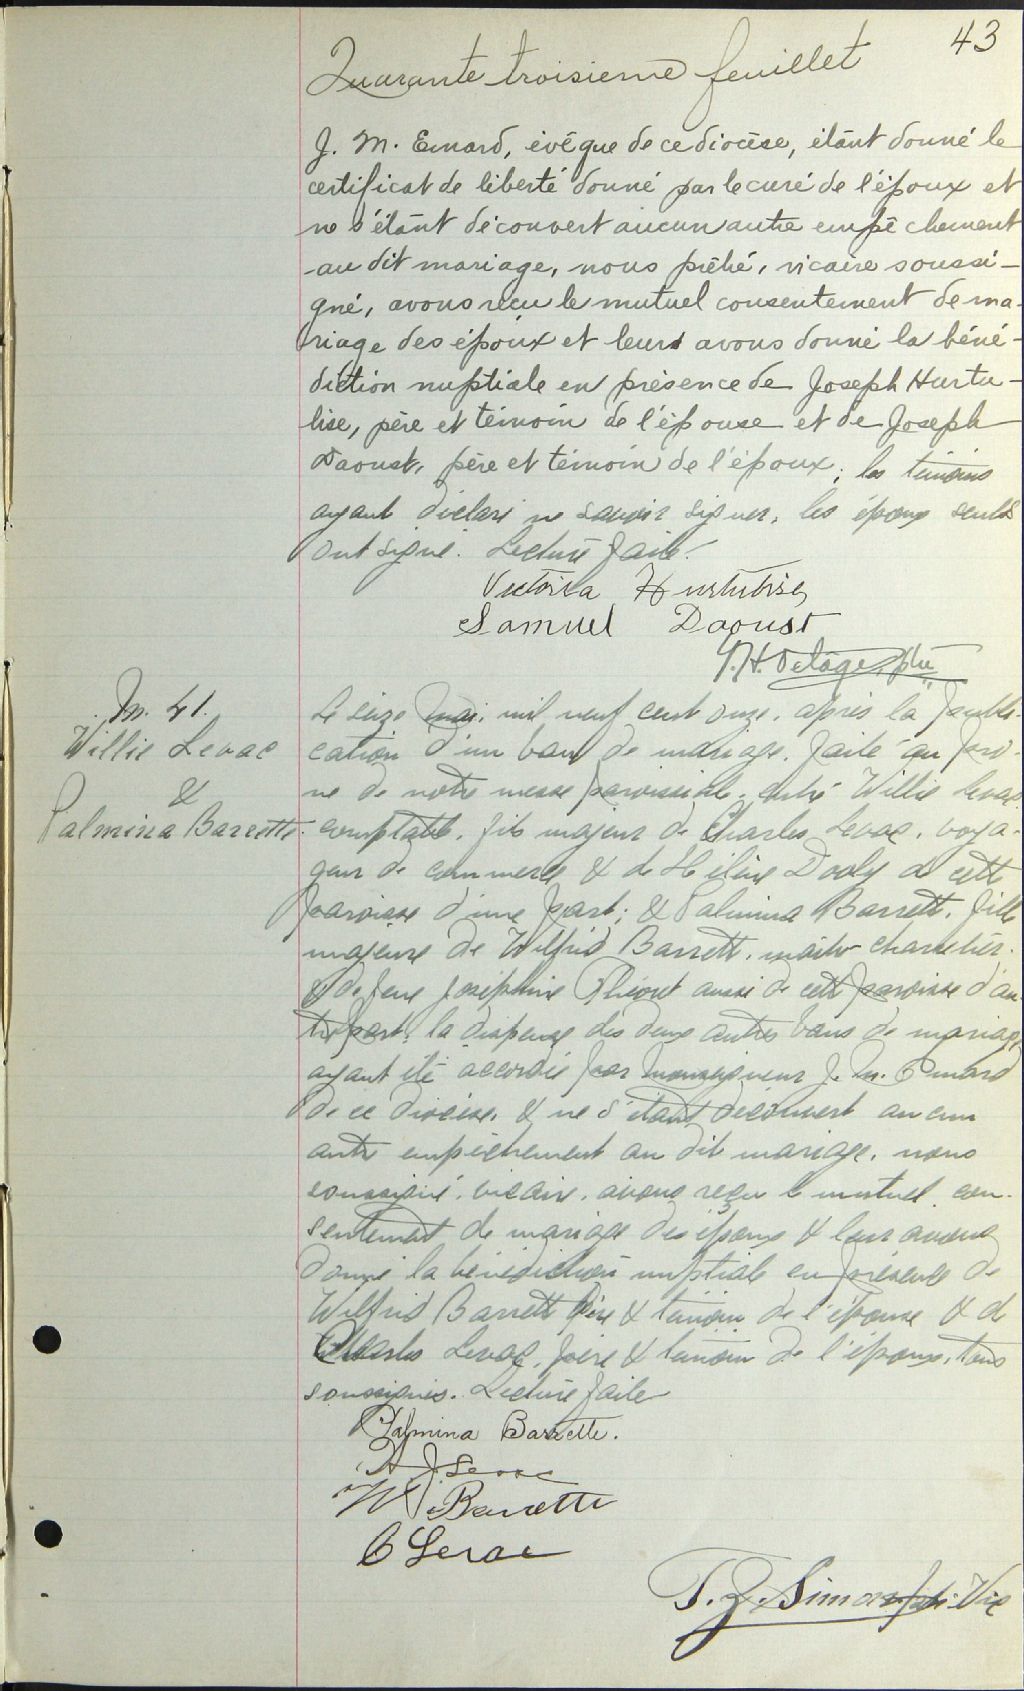 43
Quarante troisieme feuillet
J. M. Emard, évêque de ce diocèse, étant donné le
certificat de liberté donné par le curé de l'époux et
ne s'étant découvert aucun autre empêchement
au dit mariage, nous prêtre, vicaire soussi-
gné, avons reçu le mutuel consentement de ma-
riage des époux et leurs avons donné la béné-
diction nuptiale en présence de Joseph Hurtu-
bise, père et témoin de l'épouse et de Joseph
Daoust, père et témoin de l'époux; les témoins
ayant déclaré ne savoir signer, les époux seuls
ont signé. Lecture faite.
Victoria Hurtubise
Samuel Daoust
J. H. Delâge, ptre
M. 41.
Willie Levac
&
Palmina Barrette.
Le seize mai, mil neuf cent onze, après la publi-
cation d'un ban de mariage, faite au prô-
ne de notre messe paroissiale, entre Willie Levac,
comptable, fils majeur de Charles Levac, voya-
geur de commerce & de Hélène Dooly de cette
paroisse d'une part; & Palmina Barrett, fille
majeure de Wilfrid Barrett, maître charretier,
& de feue Joséphine aussi de cette paroisse d'au-
tre part, la dispense des deux autres bans de mariage
ayant été accordée par Monseigneur J. M. Emard
de ce diocèse, & ne s'étant découvert aucun
autre empêchement au dit mariage, nous
soussigné, vicaire, avons reçu le mutuel con-
sentement de mariage des époux & leur avons
donné la bénédiction nuptiale en présence de
Wilfrid Barrett père & témoin de l'épouse & de
Charles Levac, père & témoin de l'époux, tous
soussignés. Lecture faite
Palmina Barrette.
J. Levac
W. Barrette
C Levac
T. Z. Simon ptre Vic